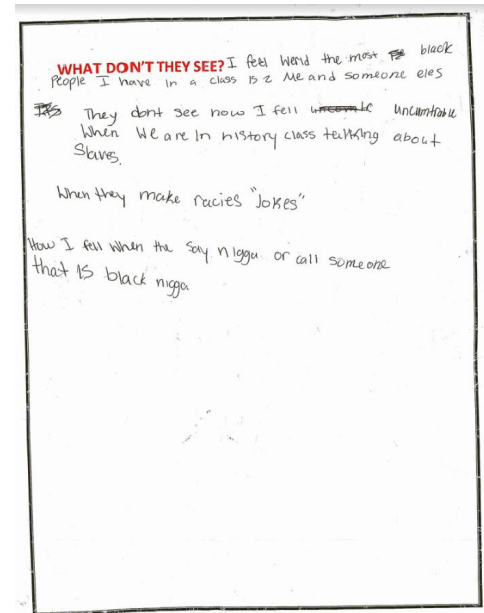 WHAT DON'T THEY SEE? I feel werid the most black
People I have in a class is 2 Me and someone eles
They dont see how I fell uncumtrable
When We are In history class talking about
Slaves.
When they make racies "Jokes"
How I fell when the say nigga or call someone
that is black nigga